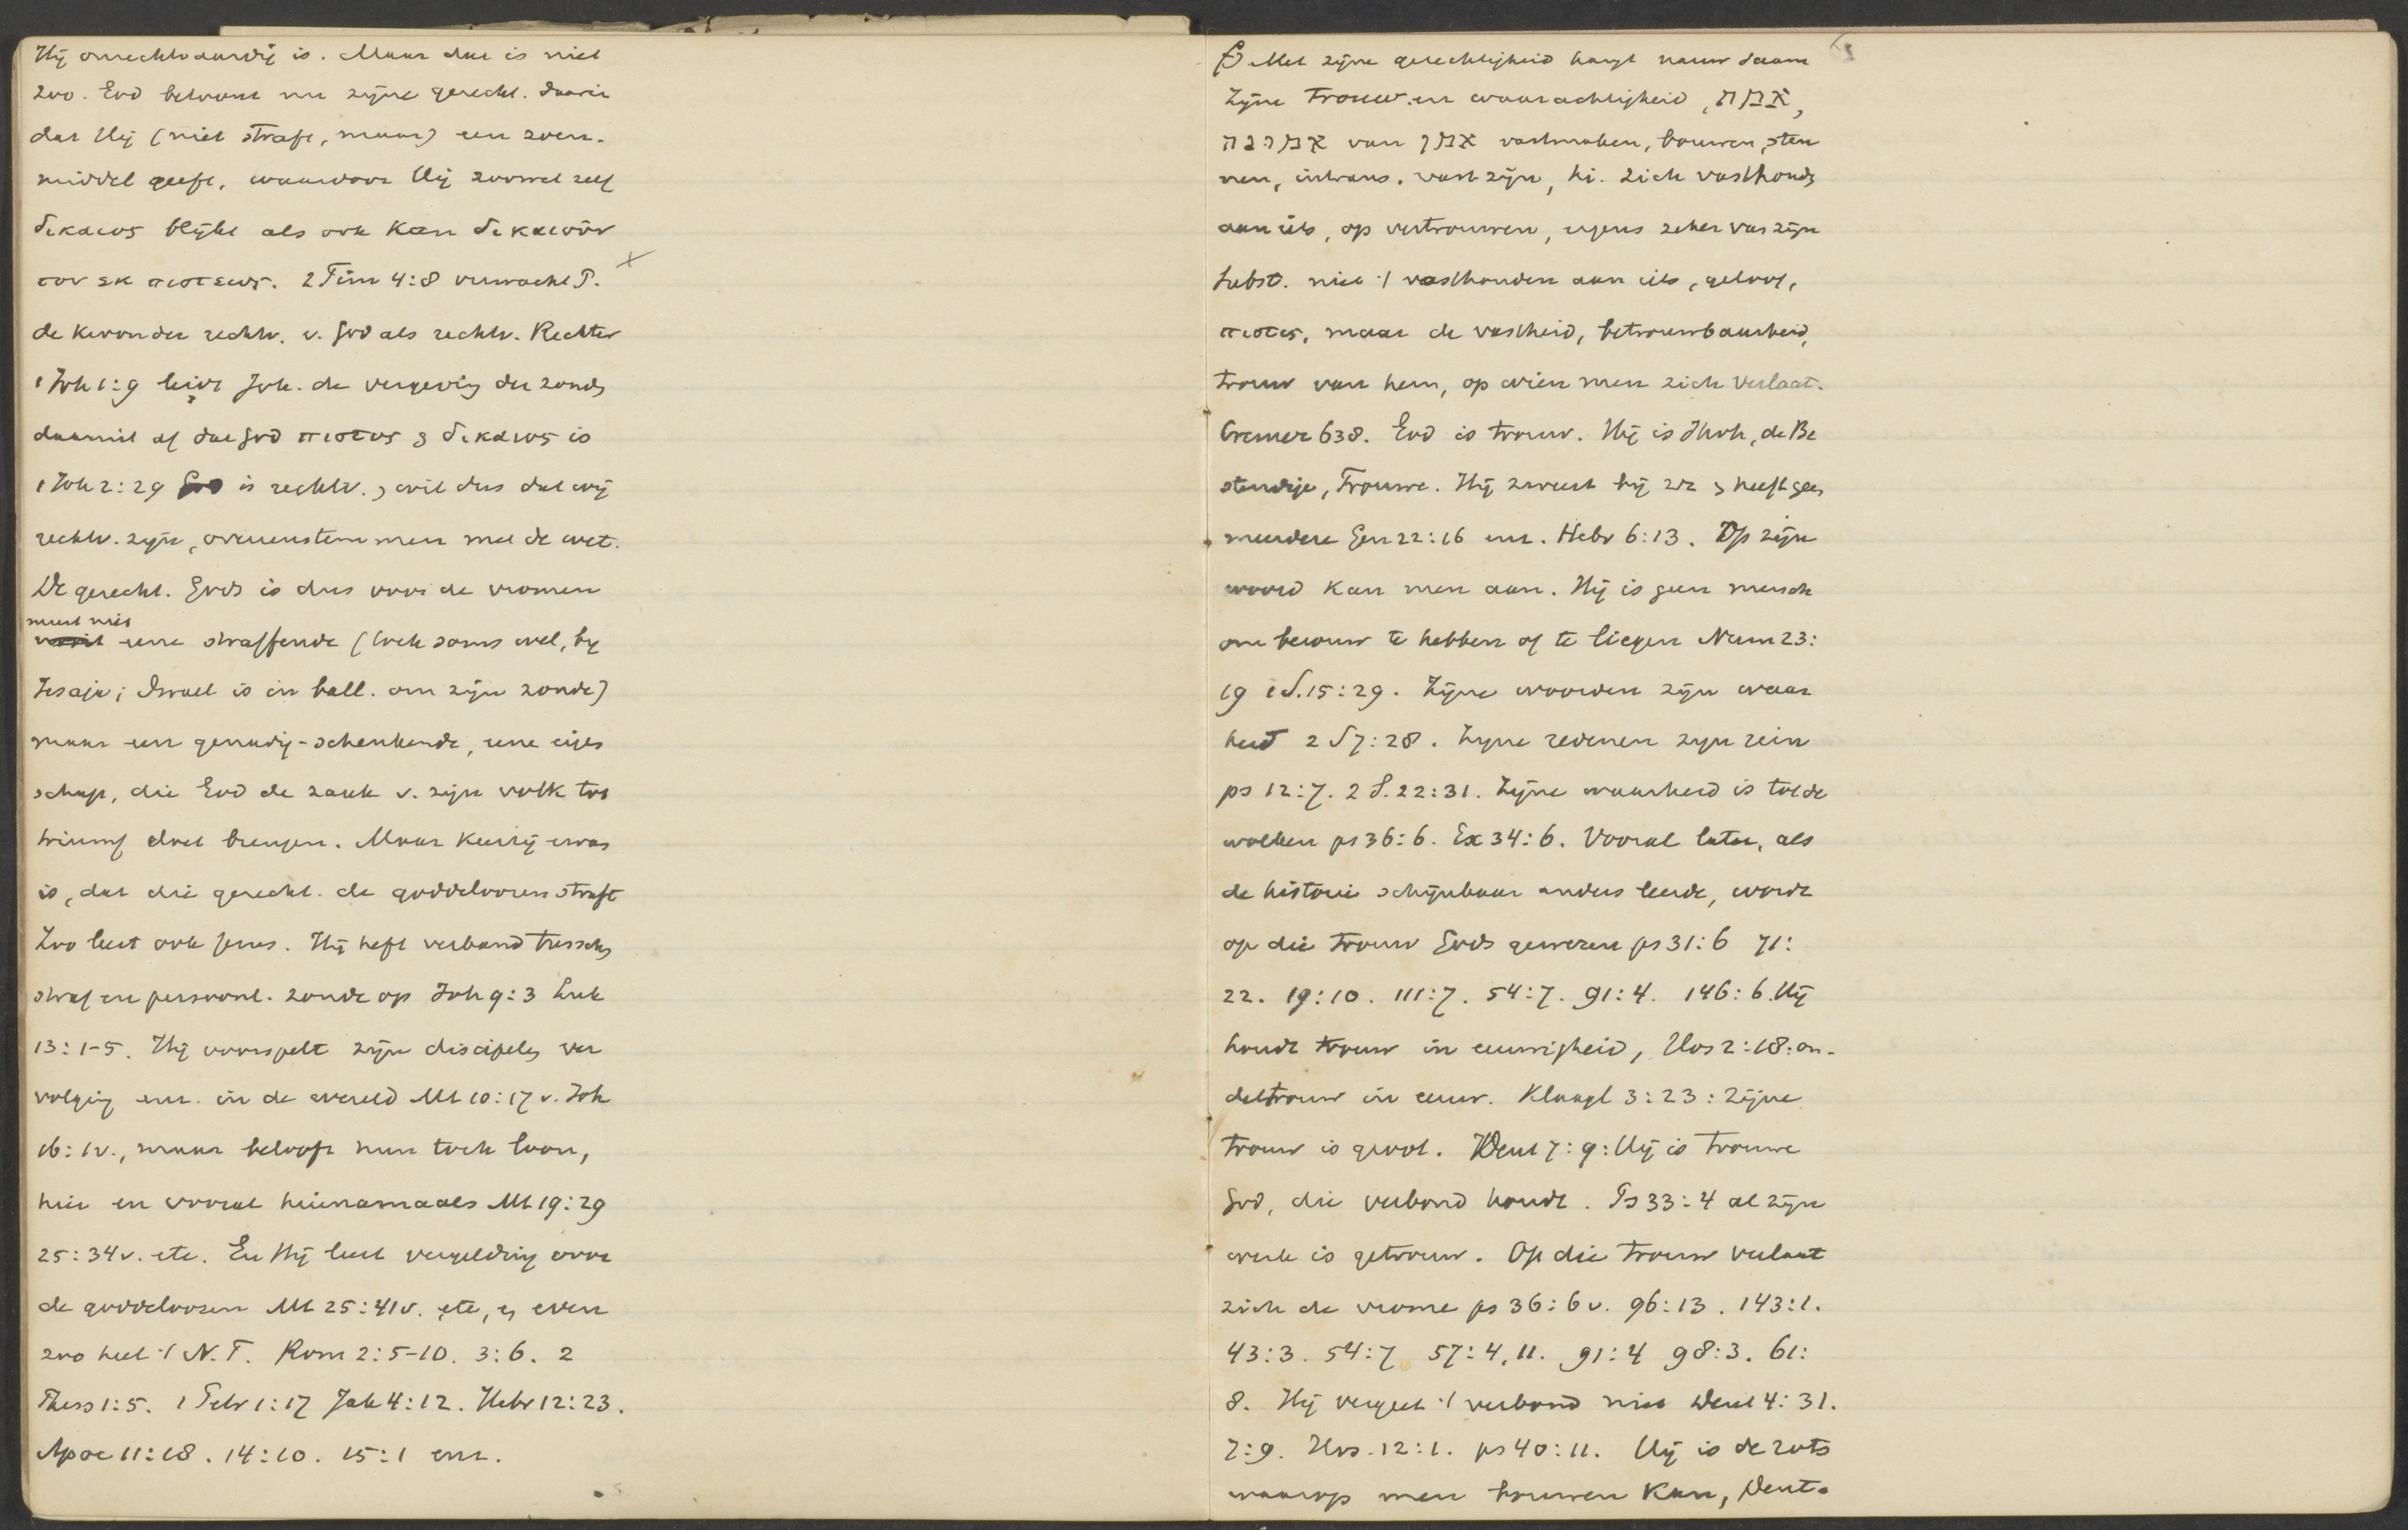 Hij onrechtvaardig is. Maar dat is niet
zoo. God betoont nu zijne gerecht. daarin
dat Hij (niet straft, maar) een zoen-
middel geeft, waardoor Hij zoowel zelf
δικαιος blijkt als ook kan δικαιοῦν
τον εκ πιστεως. 2 Tim 4:8 verwacht P.
de kroon der rechtv. v. God als rechtv. Rechter
1 Joh 1:9 leidt Joh. de vergeving der zonden
daaruit af dat God πιστος & δικαιος is
1 Joh 2:29 God is rechtv., wil dus dat wij
rechtv. zijn, overeenstemmen met de wet.
De gerecht. Gods is dus voor de vromen
meest niet
nooit eene straffende (toch soms wel, bij
Jesaja; Israel is in ball. om zijn zonde)
maar een genadig-schenkende, eene eigen
schap, die God de zaak v. zijn volk tot
triumf doet brengen. Maar keerzij ervan
is, dat die gerecht. de goddeloozen straft
Zoo leert ook Jezus. Hij heft verband tusschen
straf en persoonl. zonde op Joh 9:3 Luk
13:1-5. Hij voorspelt zijn discipelen ver
volging enz. in de wereld Mt 10:17 v. Joh
16:1v., maar belooft hun toch loon,
hier en vooral hiernamaals Mt 19:29
25:34v. etc. En Hij leert vergelding voor
de goddeloozen Mt 25:41v. etc, en even
zoo heel 't N.T. Rom 2:5-10. 3:6. 2
Thess 1:5. 1 Petr 1:17 Jak 4:12. Hebr 12:23.
Apoc 11:18. 14:10. 15:1 enz.
Met zijne gerechtigheid hangt nauw saam
Zijne trouw en waarachtigheid, אמת,
אמונה van אמן vastmaken, bouwen, steu
nen, intrans. vast zijn, hi. zich vasthouden
aan iets, op vertrouwen, ergens zeker van zijn
Subst. niet 't vasthouden aan iets, geloof,
πιστις, maar de vastheid, betrouwbaarheid,
trouw van hem, op wien men zich verlaat.
Cremer 638. God is trouw. Hij is Jhvh, de Be
stendige, Trouwe. Hij zweert bij zz & heeft geen
meerdere Gen 22:16 enz. Hebr 6:13. Op zijn
woord kan men aan. Hij is geen mensch
om berouw te hebben of te liegen Num 23:
19 1 S. 15:29. Zijne woorden zijn waar
heid 2 S 7:28. Zijne redenen zijn rein
ps 12:7. 2 S. 22:31. Zijne waarheid is tot de
wolken ps 36:6. Ex 34:6. Vooral later, als
de historie schijnbaar anders leerde, wordt
op die trouw Gods gewezen ps 31:6 71:
22. 19:10. 111:7. 54:7. 91:4. 146:6. Hij
houdt trouw in eeuwigheid, Hos 2:18: on-
dertrouw in eeuw. Klaagl 3:23: Zijne
trouw is groot. Deut 7:9: Hij is trouwe
God, die verbond houdt. Ps 33:4 al zijn
werk is getrouw. Op die trouw verlaat
zich de vrome ps 36:6 v. 96:13. 143:1.
43:3. 54:7 57:4,11. 91:4 98:3. 61:
8. Hij vergeet 't verbond niet Deut 4:31.
7:9. Hos. 12:1. ps 40:11. Hij is de rots
waarop men bouwen kan, Deut.